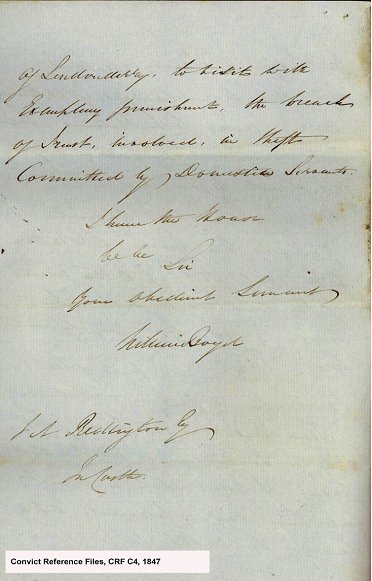 of Londonderry, to visit with
Exemplary punishment, the breach
of Trust, involved, in theft
Committed by Domestic Servants.
I have the Honor
to be Sir
Your Obedient Servant
Boyd
Redington Esq
Castle
Convict Reference Files, CRF C4, 1847